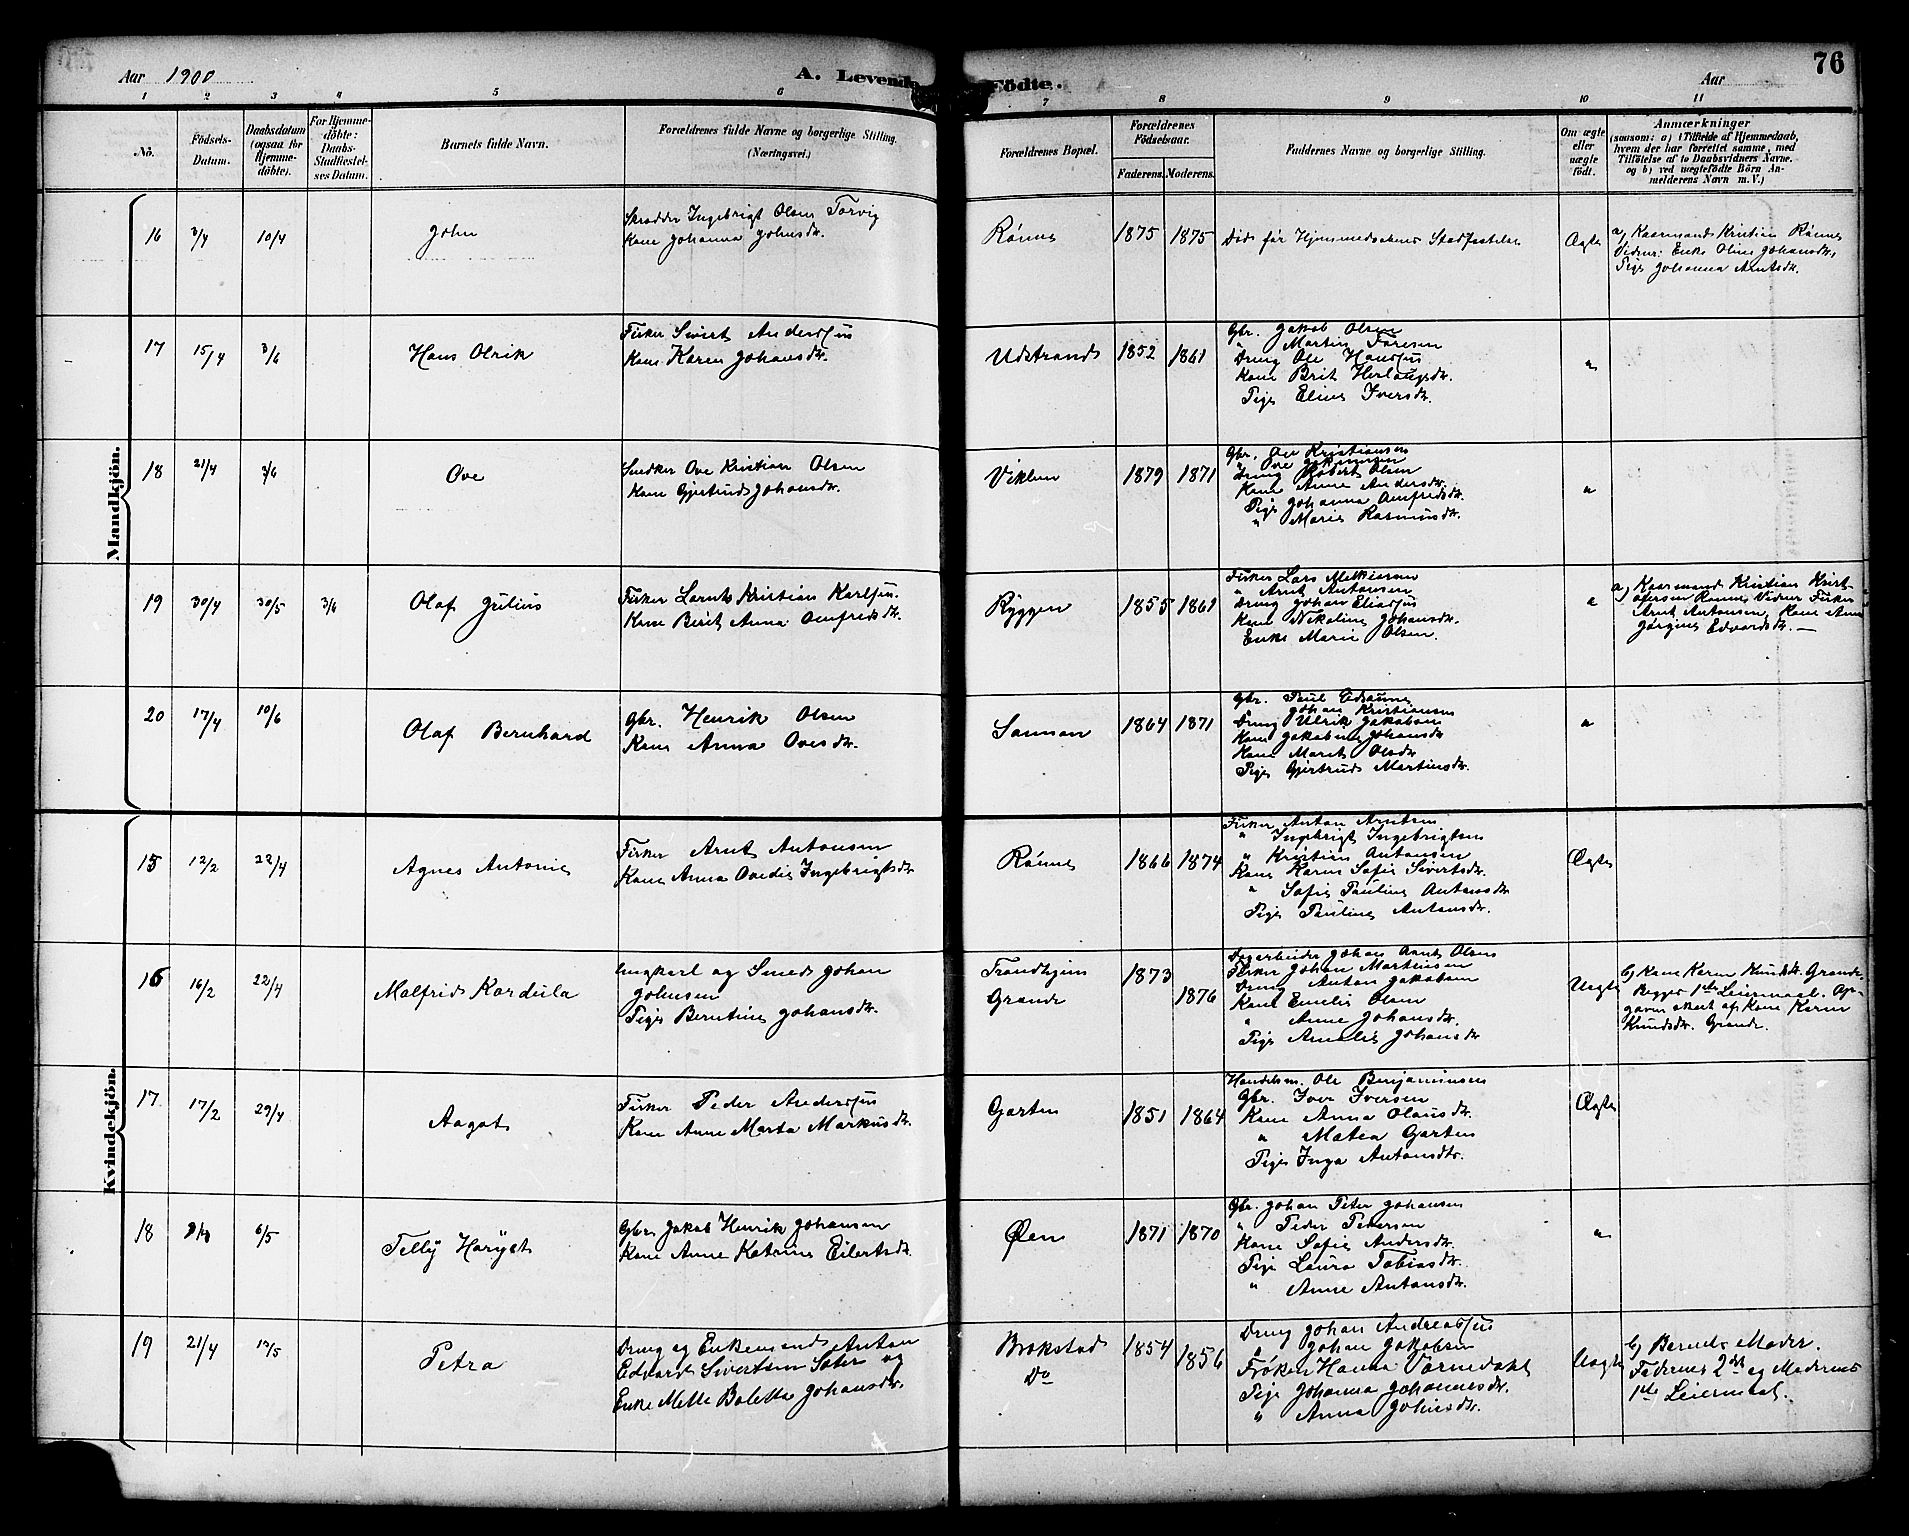 Aar 1900
A. Levende Födte.
Aar
76
1 2 3 4 5 6 7 8 9 10 11
No.
Födsels-
Datum.
Daabsdatum
(ogsaa for
Hjemme-
döbte).
For Hjemme-
döbte:
Daabs-
Stadfæstel-
ses Datum.
Barnets fulde Navn.
Forældrenes fulde Navne og borgerlige Stilling.
(Næringsvei.)
Forældrenes Bopæl.
Forældrenes
Födselsaar.
Faderens. Moderens.
Faddernes Navne og borgerlige Stilling.
Om ægte
eller
uægte
født.
Anmærkninger
(saasom: a) i Tilfælde af Hjemmedaab,
hvem der har forrettet samme, med
Tilføielse af to Daabsvidners Navne.
og b) ved uægtefødte Börn An-
melderens Navn m. V.)
Mandkjön.
16
3/4
10/4
John
Skrædder Ingebrigt Olsen Torvig
Kone Johanna Johnsdtr.
Rönne
1875
1875
Död før Hjemmedaabens Stadfæstelse
Ægte
a) Kaarmand Kristian Rönne
Vidner: Enke Oline Johansdtr,
Pige Johanna Arntsdtr.
17
15/4
3/6
Hans Olrik
Fisker Sivert Anderssen
Kone Karen Johansdtr.
Udstrand
1852
1861
Gbr. Jakob Olsen
" Martin Foresen
Dreng Ole Hanssen
Kone Brit Herlaugsdtr.
Pige Eline Iversdtr.
"
18
21/4
3/6
Ove
Snedker Ove Kristian Olsen
Kone Gjertrud Johansdtr.
Viklem
1879
1871
Gbr. Ole Kristiansen
" Ove
Dreng Robert Olsen
Kone Anne Andersdtr.
Pige Johanna Amfredsdtr.
" Marie Rasmusdtr.
"
19
30/4
30/5
3/6
Olaf Julius
Fisker Lornts Kristian Karlsen.
Kone Berit Anna Amfredsdtr.
Ryggen
1855
1861
Fisker Lars Melkiorsen
" Arnt Antonsen
Dreng Johan Eliassen
Kone Nikoline Johansdtr.
Enke Marie Olsen
"
a) Kaarmand Kristian Krist-
ofersen Rönne, Vidner Fisker
Arnt Antonsen, Kone Anne
Jørgine Edvardsdtr. —
20
17/4
10/6
Olaf Bernhard
Gbr. Henrik Olsen
Kone Anna Ovesdtr.
1864
1871
Gbr. Paul Eidsaune
" Johan Kristiansen
Dreng Ulrik Jakobsen
Kone Jakobine Johansdtr
Kone Marit Olsdtr
Pige Gjertrud Martinsdtr.
"
Kvindekjön.
15
12/2
22/4
Agnes Antonie
Fisker Arnt Antonsen
Kone Anna Ovedie Ingebrigtsdtr
Rönne
1866
1874
Fisker Anton Arntsen
" Ingebrigt Ingebrigtsen
" Kristian Antonsen
Kone Karen Sofie Sivertsdtr.
" Sofie Pauline Antonsdtr
Pige Pauline Antonsdtr.
Ægte
16
16/2
22/4
Malfrid Kordula
Ungkarl og Smed Johan
Johnsen
Pige Berntine Johansdtr.
Trondhjem
Grande
1873
1876
Dagarbeider Johan Arnt Olsen
Fisker Johan Martinsen
Dreng Anton Jakobsen
Kone Emelie Olsen
" Anne Johansdtr.
Pige Amalie Johansdtr
Uægte
b) Kone Karen Knudsdtr. Grande.
Begges 1ste Leiermaal. Op-
gaven skeet af Kone Karen
Knudsdtr. Grande.
17
17/2
29/4
Aagot
Fisker Peder Anderssen
Kone Anne Marta Markusdtr.
Garten
1851
1864
Handelsm. Ole Benjaminsen
Gbr. Iver Iversen
Kone Anna Olausdtr.
" Matea Garten
Pige Inga Antonsdtr.
Ægte
18
6/5
Telly Haryet
Gbr. Jakob Henrik Johansen
Kone Anne Katrine Eilertsdtr.
Øen
1871
1870
Gbr. Johan Peter Johansen
" Peder Pedersen
Kone Sofie Andersdtr.
Pige Laura Tobiasdtr.
" Anne Antonsdtr.
"
19
21/4
Petra
Dreng og Enkemand Anton
Edvard Sivertsen Sæter og
Enke Mette Boletta Johansdtr.
Brekstad
Do
1854
1856
Dreng Johan Andreassen
" Johan Jakobsen
Frøken Hanna Varnedahl
Pige Johanna Johannesdtr.
" Anna Johnsdtr.
Uægte
b) Barnets Moder.
Faderens 2det og Moderens
1ste Leiermaal.